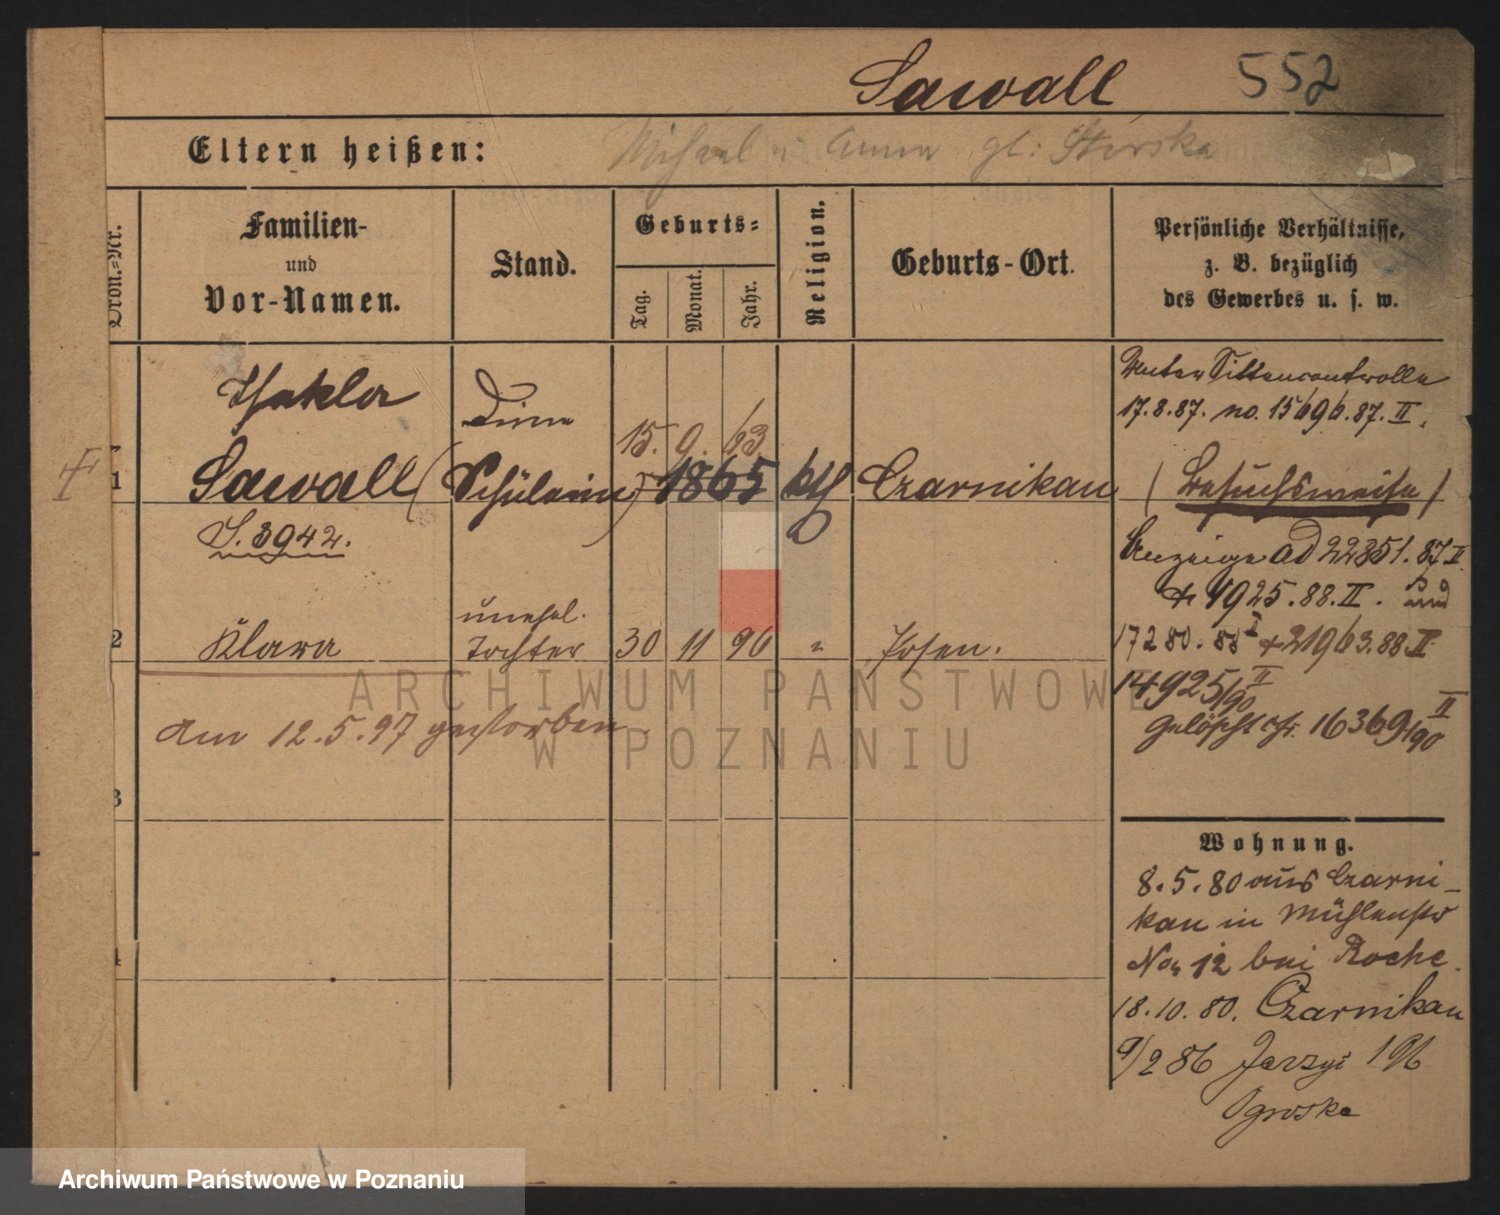 Sawall 552
Eltern heißen: Michael u Anna gb: Skórska
Oron.=Nr.
Familien-
und
Vor-Namen.
Stand.
Geburts=
Tag.
Monat.
Jahr.
Religion.
Geburts-Ort.
Persönliche Verhältnisse,
z. B. bezüglich
des Gewerbes u. s. w.
Thekla
Dirne
15. 9. 63
1 Sawall (Schülerin) 1865 kth Czarnikau
S. 8942.
unehel.
2 Klara Tochter 30 11 96 " Posen.
am 12.5.97 gestorben.
3
4
Unter Sittencontrolle
17.8.87. no. 15696.87.II.
(Besuchsweise)
Anzeige ad 22851.87 II
+ 1925.88.II. und
17280.88 I + 21963.88.II
14925/90 II
gelöscht cfr. 16369/90 II
Wohnung.
8.5.80 aus Czarni-
kau in Mühlenstr
No 12 bei Roche.
18.10.80. Czarnikau
9/2 86 Jerzyi 196
Ogroska
ARCHIWUM PAŃSTWOWE
W POZNANIU
Archiwum Państwowe w Poznaniu